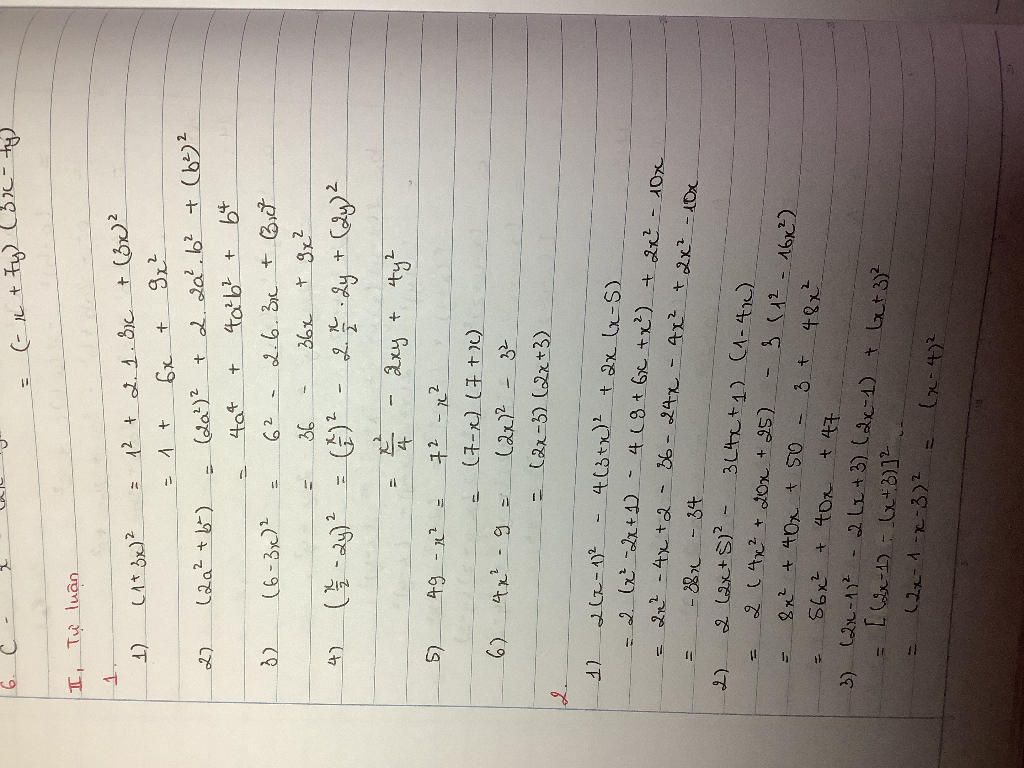 6. C
= (-x + 7y) (3x - 7y)
II, Tự luận
1.
1) (1+3x)² = 1² + 2.1.3x + (3x)²
= 1 + 6x + 9x²
2) (2a² + b²) = (2a²)² + 2.2a².b² + (b²)²
= 4a⁴ + 4a²b² + b⁴
3) (6-3x)² = 6² - 2.6.3x + (3x)²
= 36 - 36x + 9x²
4) (x/2 - 2y)² = (x/2)² - 2.x/2.2y + (2y)²
= x²/4 - 2xy + 4y²
5) 49 - x² = 7² - x²
= (7-x)(7+x)
6) 4x² - 9 = (2x)² - 3²
= (2x-3)(2x+3)
2.
1) 2(x-1)² - 4(3+x)² + 2x(x-5)
= 2 (x² - 2x+1) - 4(9 + 6x + x²) + 2x² - 10x
= 2x² - 4x + 2 - 36 - 24x - 4x² + 2x² - 10x
= -38x - 34
2) 2(2x+5)² - 3(4x+1)(1-4x)
= 2 (4x² + 20x + 25) - 3 (1² - 16x²)
= 8x² + 40x + 50 - 3 + 48x²
= 56x² + 40x + 47
3) (2x-1)² - 2(x+3)(2x-1) + (x+3)²
= [(2x-1) - (x+3)]²
= (2x-1-x-3)² = (x-4)²